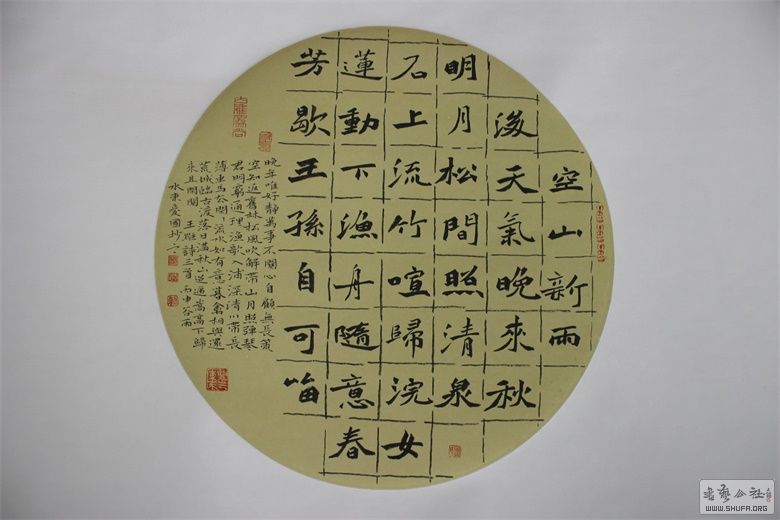 空山新雨
後天氣晚來秋
明月松間照清泉
石上流竹喧歸浣女
蓮動下漁舟隨意春
芳歇王孫自可留
晚年唯好靜萬事不關心自顧無長策
空知返舊林松風吹解帶山月照彈琴
君問窮通理漁歌入浦深清川帶長
薄車馬去閑〻流水如有意暮禽相與還
荒城臨古渡落日滿秋山迢遞嵩高下歸
來且閉關 王維詩三首 丙申谷雨
水東愛國抄
书艺公社
WWW.SHUFA.ORG